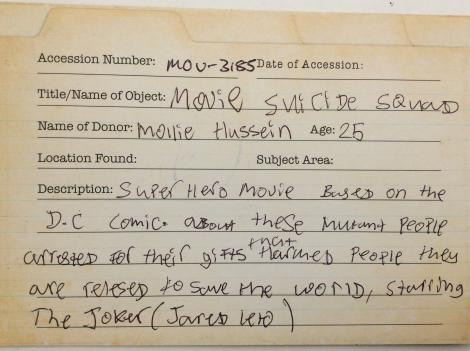 Accession Number: MOV-3185 Date of Accession:
Title/Name of Object: Movie Suicide Squad
Name of Donor: Mollie Hussein Age: 25
Location Found: Subject Area:
Description: Super Hero Movie Based on the
D.C Comic. about these Mutant People
arrested for their gifts that Harmed People they
are relesed to Save the world, Starring
The Joker (Jared leto)